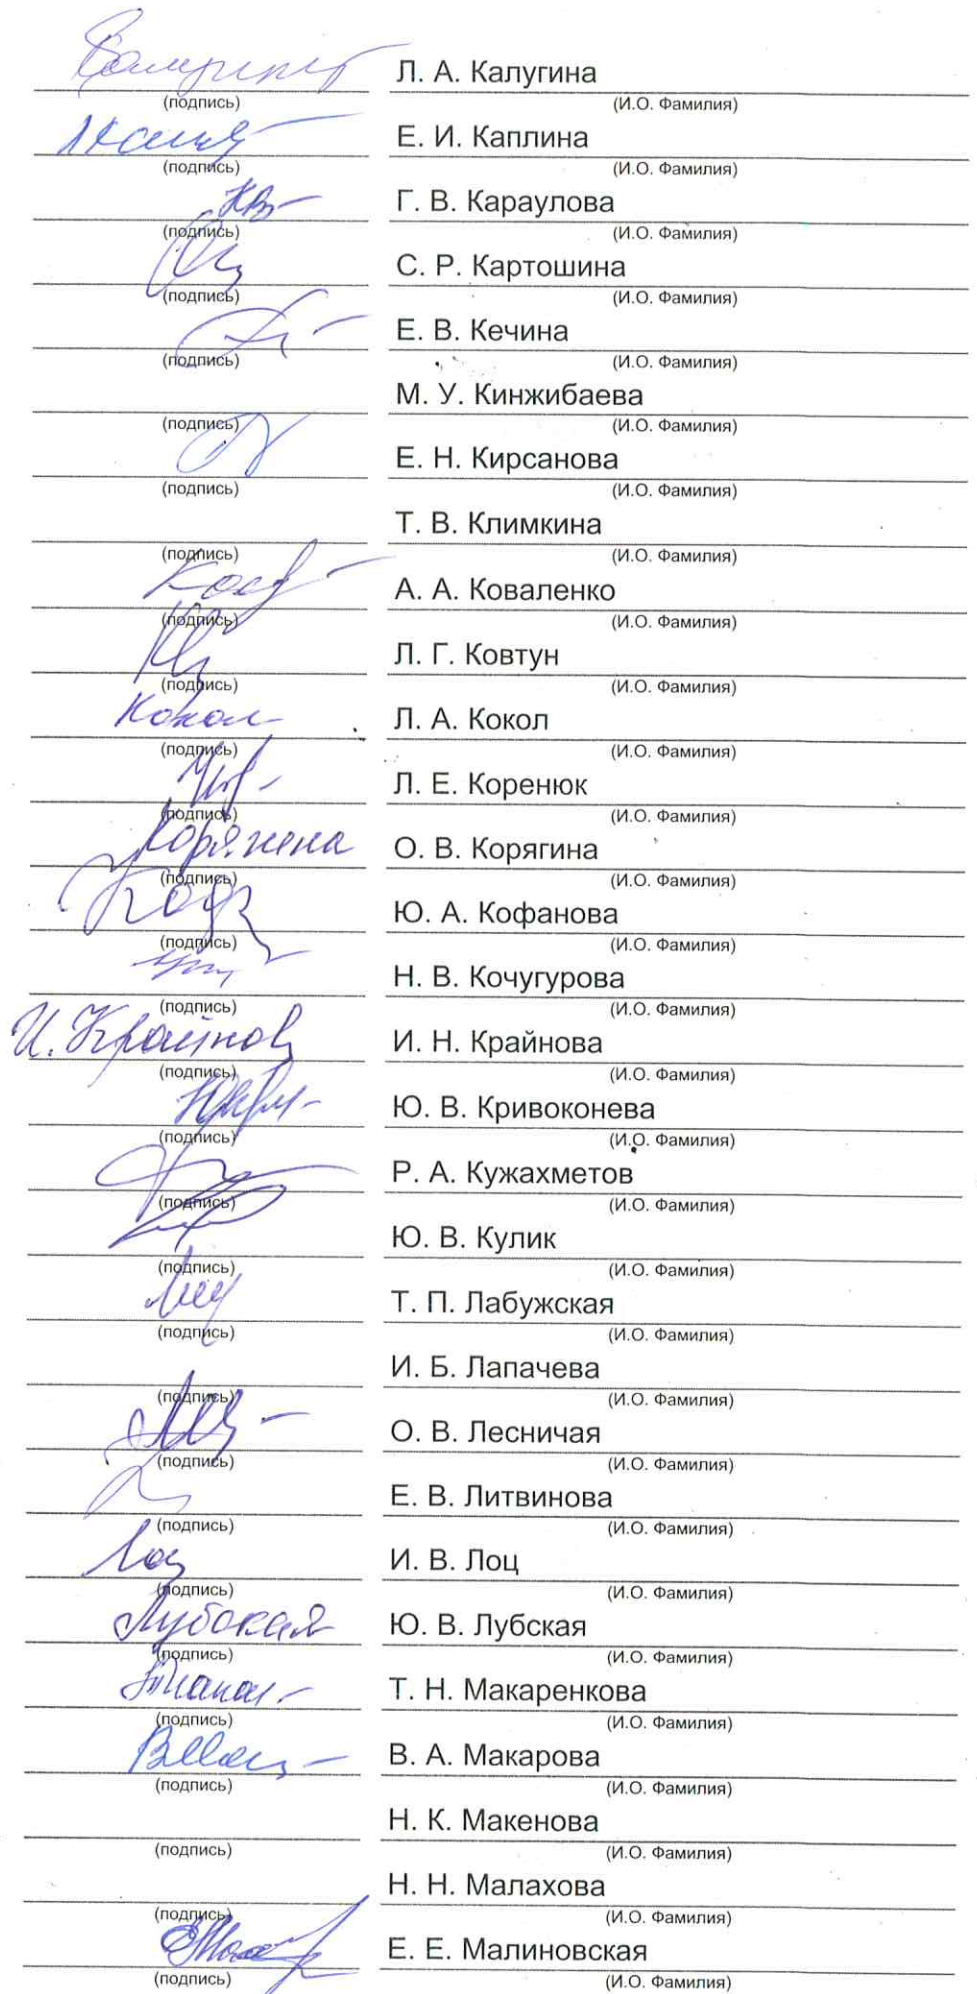 Л. А. Калугина
(подпись) (И.О. Фамилия)
Е. И. Каплина
(подпись) (И.О. Фамилия)
Г. В. Караулова
(подпись) (И.О. Фамилия)
С. Р. Картошина
(подпись) (И.О. Фамилия)
Е. В. Кечина
(подпись) (И.О. Фамилия)
М. У. Кинжибаева
(подпись) (И.О. Фамилия)
Е. Н. Кирсанова
(подпись) (И.О. Фамилия)
Т. В. Климкина
(подпись) (И.О. Фамилия)
А. А. Коваленко
(подпись) (И.О. Фамилия)
Л. Г. Ковтун
(подпись) (И.О. Фамилия)
Кокол Л. А. Кокол
(подпись) (И.О. Фамилия)
Л. Е. Коренюк
(подпись) (И.О. Фамилия)
Корягина О. В. Корягина
(подпись) (И.О. Фамилия)
Ю. А. Кофанова
(подпись) (И.О. Фамилия)
Н. В. Кочугурова
(подпись) (И.О. Фамилия)
И. Н. Крайнова
(подпись) (И.О. Фамилия)
Ю. В. Кривоконева
(подпись) (И.О. Фамилия)
Р. А. Кужахметов
(подпись) (И.О. Фамилия)
Ю. В. Кулик
(подпись) (И.О. Фамилия)
Т. П. Лабужская
(подпись) (И.О. Фамилия)
И. Б. Лапачева
(подпись) (И.О. Фамилия)
О. В. Лесничая
(подпись) (И.О. Фамилия)
Е. В. Литвинова
(подпись) (И.О. Фамилия)
Лоц И. В. Лоц
(подпись) (И.О. Фамилия)
Лубская Ю. В. Лубская
(подпись) (И.О. Фамилия)
Т. Н. Макаренкова
(подпись) (И.О. Фамилия)
В. А. Макарова
(подпись) (И.О. Фамилия)
Н. К. Макенова
(подпись) (И.О. Фамилия)
Н. Н. Малахова
(подпись) (И.О. Фамилия)
Е. Е. Малиновская
(подпись) (И.О. Фамилия)